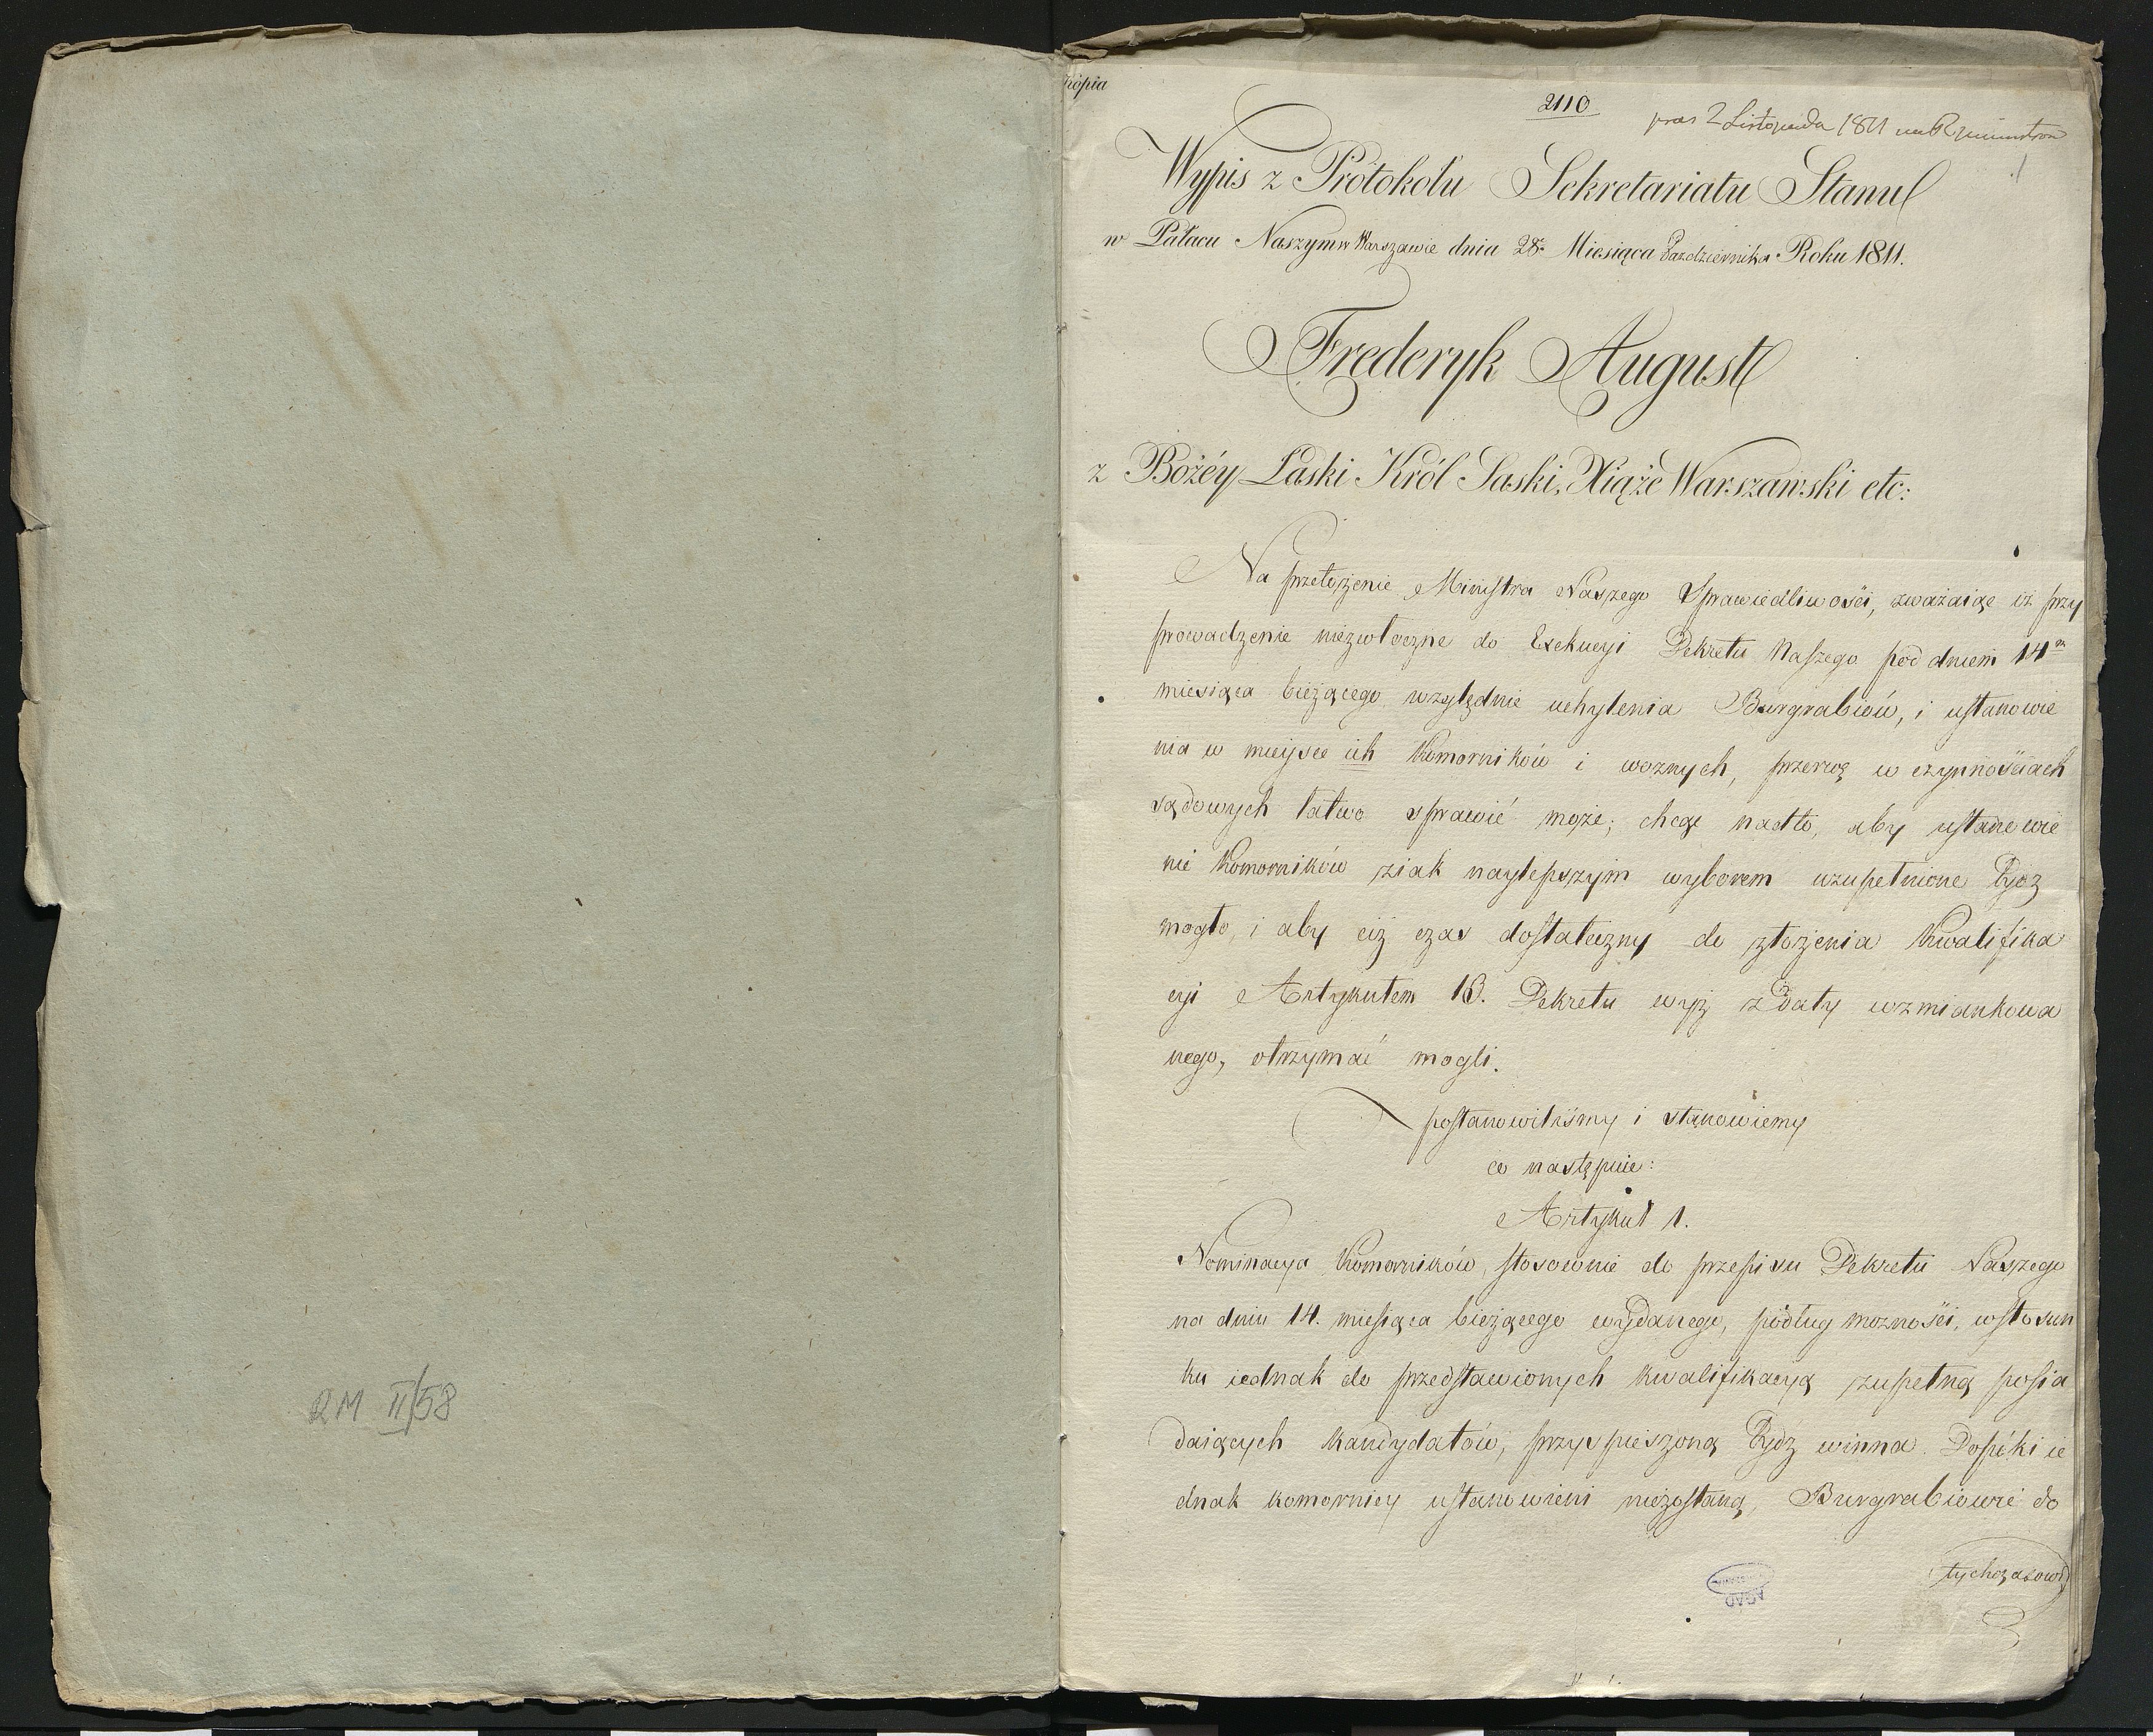 RM II/58
Kopia
2110
pras 2 Listopada 1811
1
Wypis z Protokołu Sekretariatu Stanu
w Pałacu Naszym w Warszawie dnia 28. Miesiąca Pazdziernika Roku 1811.
Frederyk August
z Bożéy Łaski Król Saski, Xiąże Warszawski etc:
Na przełożenie Ministra Naszego Sprawiedliwości, zważaiąc iż przy
prowadzenie niezwłoczne do Exekucyi Dekretu Naszego pod dniem 14m
miesiąca bieżącego względnie uchylenia Burgrabiów, i ustanowie
nia w mieysce ich Komorników i woznych, przerwę w czynnościach
sądowych łatwo sprawić może; chcąc nadto, aby ustanowie
nie Komorników ziak naylepszym wyborem uzupełnione bydź
mogło, i aby ciż czas dostateczny do złożenia Kwalifika
cyi Artykułem 16. Dekretu wyż z Daty wzmiankowa
nego, otrzymać mogli.
postanowiliśmy i stanowiemy
co następuie:
Artykuł 1.
Nominacya Komorników, stosownie do przepisu Dekretu Naszego
na dniu 14. miesiąca bieżącego wydanego, podług możności, wstosun
ku iednak do przedstawionych kwalifikacyą zupełną posia
daiących Kandydatów, przyspieszoną bydź winna. Dopóki ie
dnak komornicy ustanowieni niezostaną, Burgrabiowie do
tychczasowi
AGAD